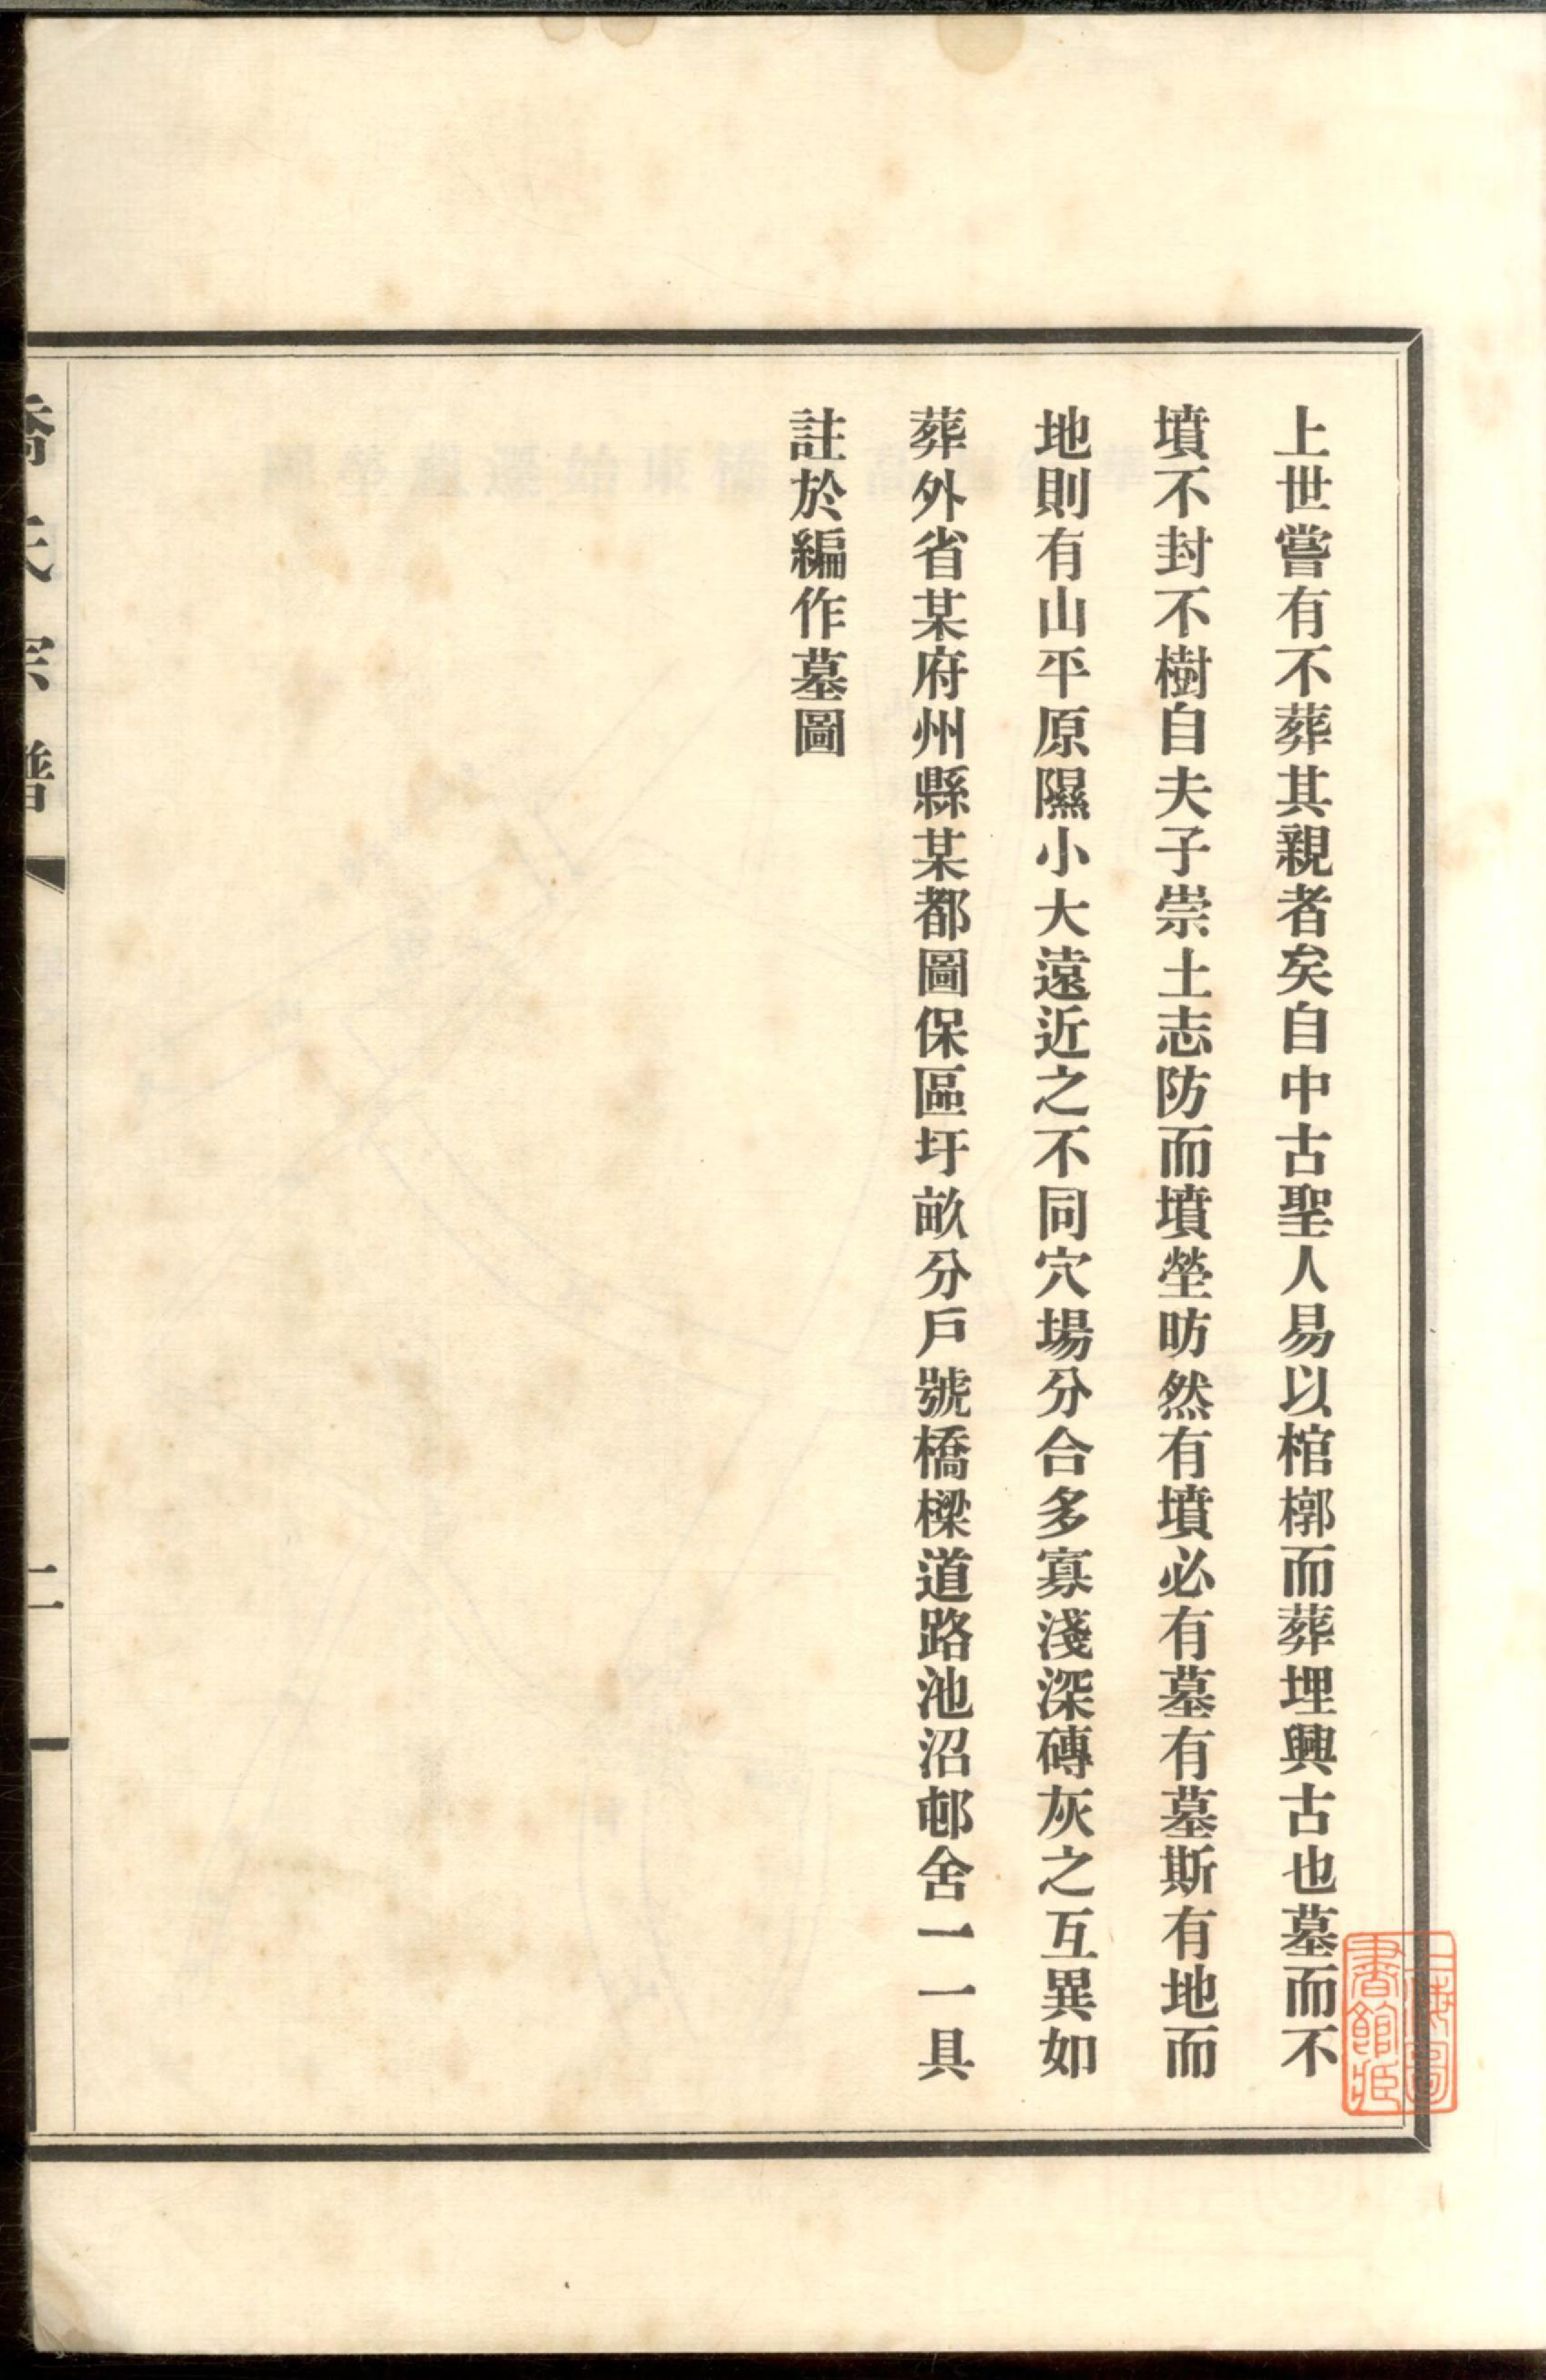 上世嘗有不葬其親者矣自中古聖人易以棺槨而葬埋興古也墓而不
墳不封不樹自夫子崇土志防而墳塋昉然有墳必有墓有墓斯有地而
地則有山平原隰小大遠近之不同穴場分合多寡淺深磚灰之互異如
葬外省某府州縣某都圖保區圩畝分戶號橋樑道路池沼邨舍一一具
註於編作墓圖
氏宗譜
二
上海圖
書館藏